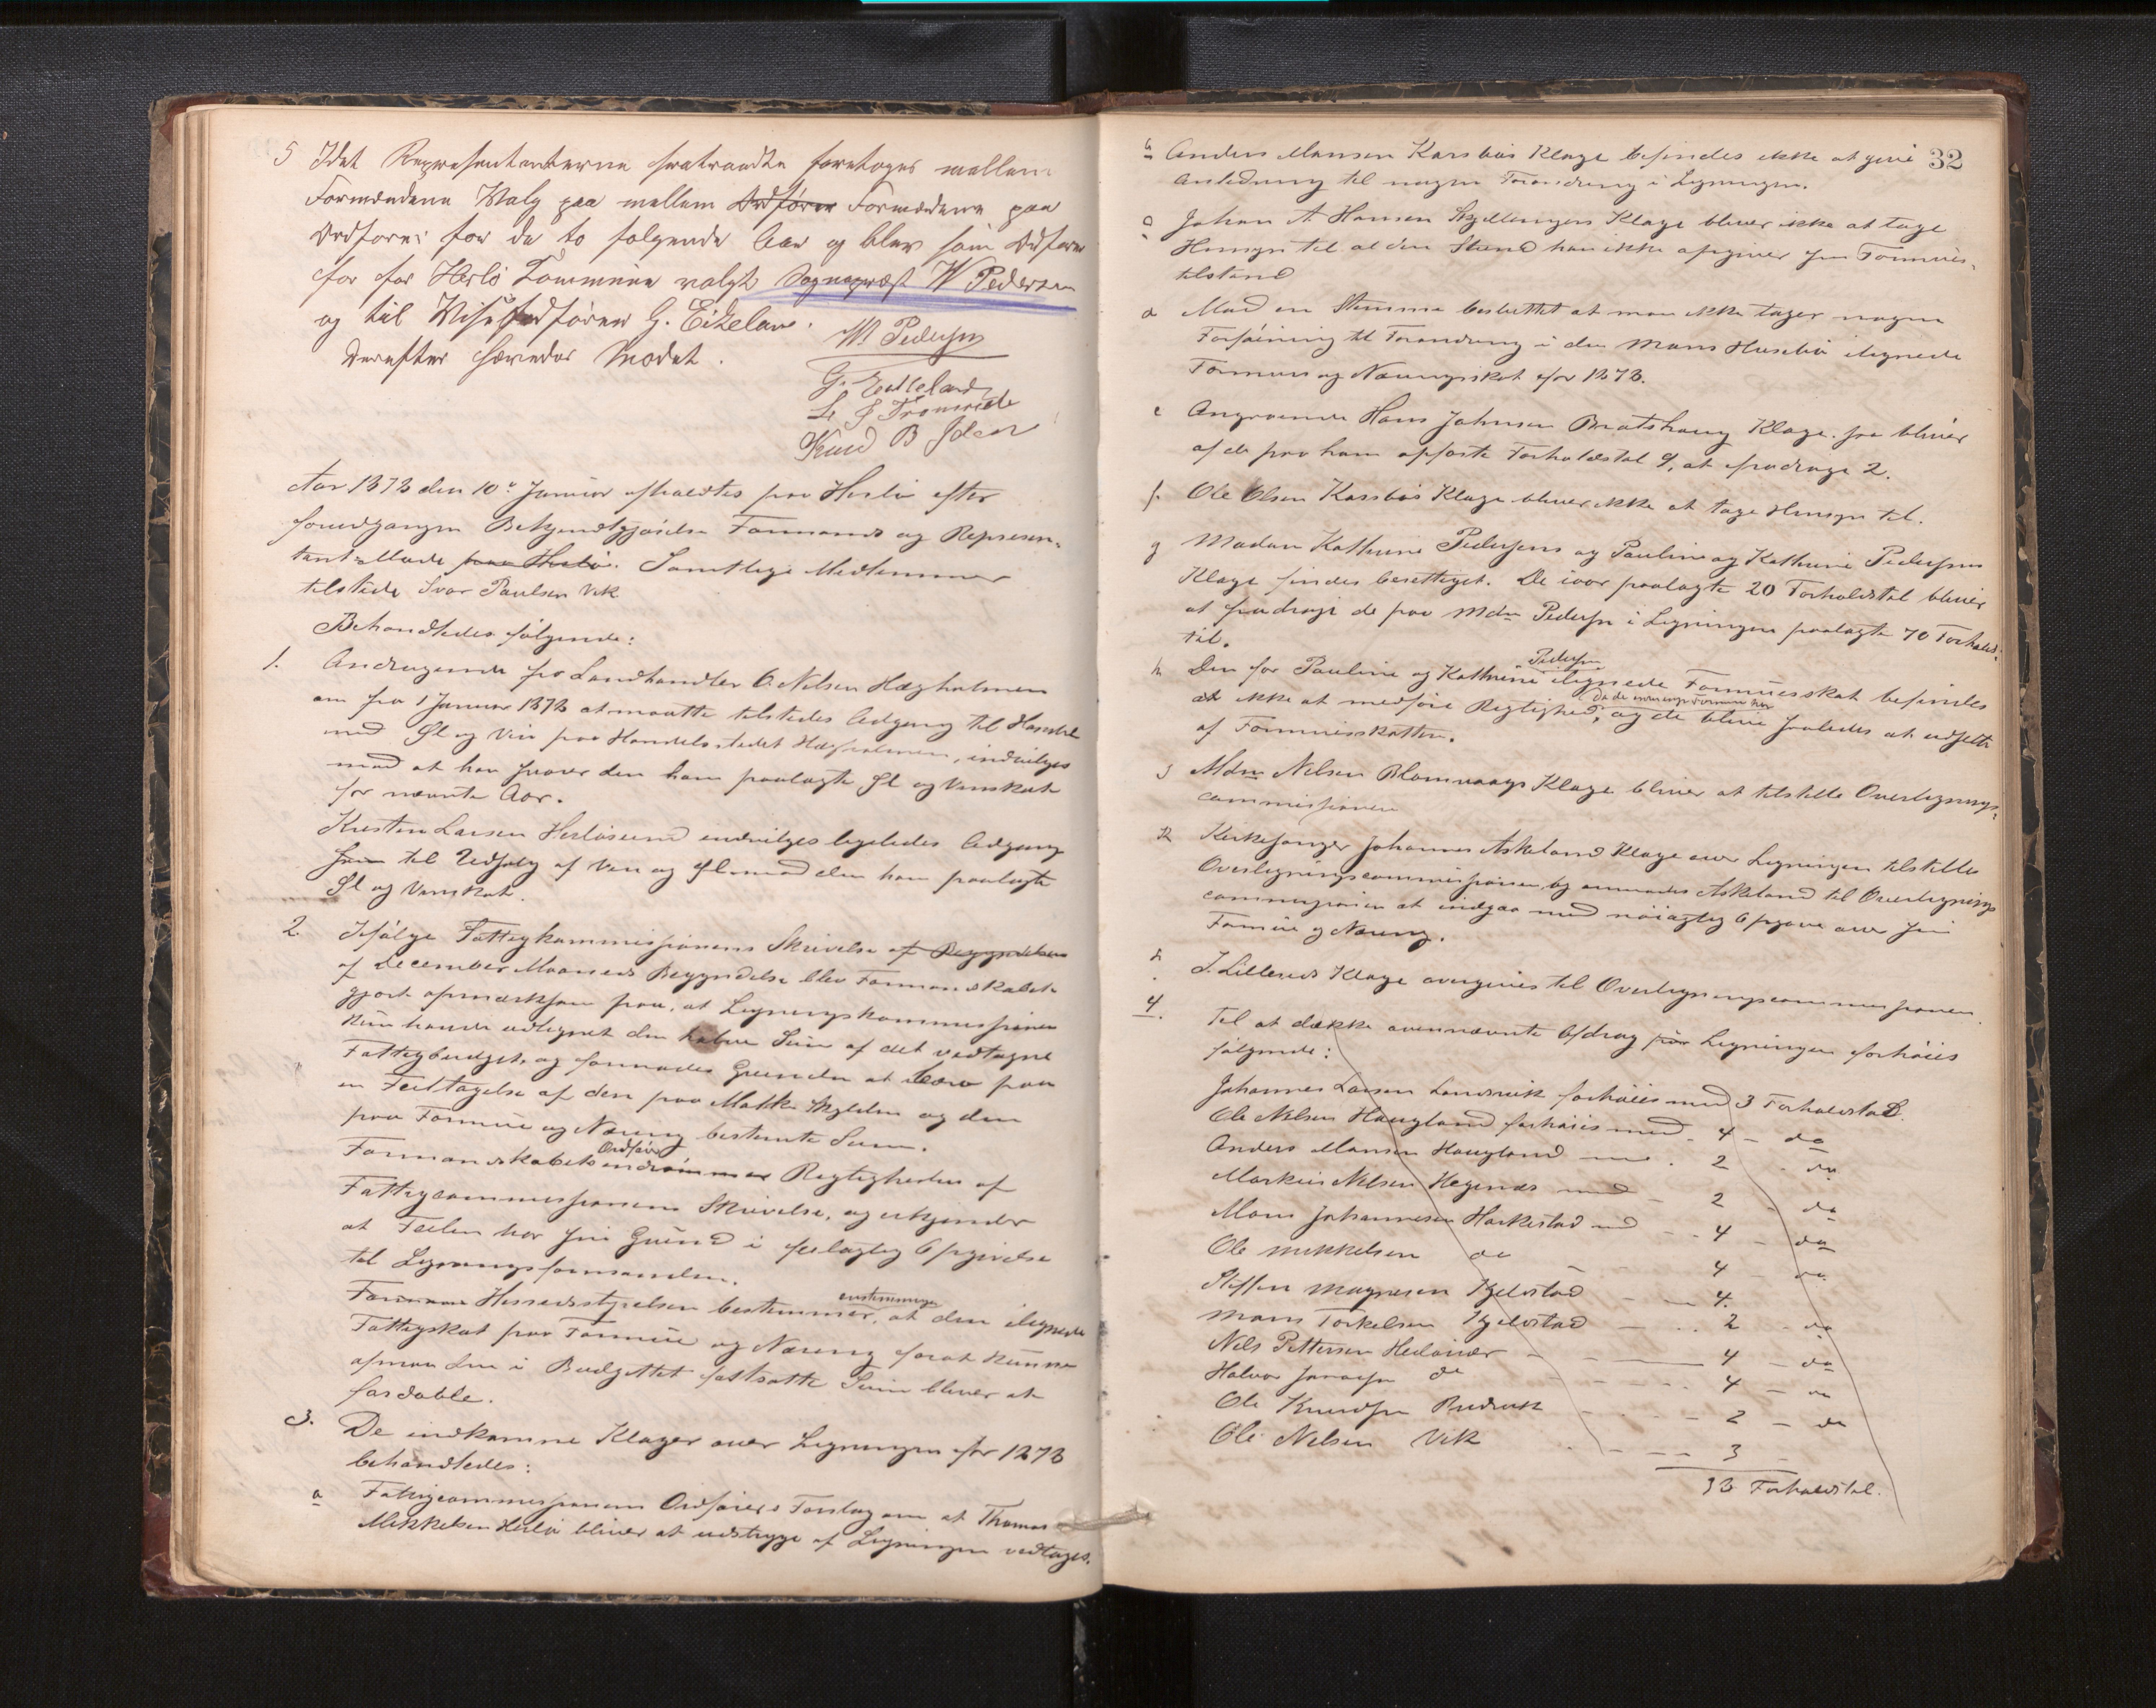 5 Idet Representanterne fratraadte foretoges mellem
Formændene Valg paa mellem Ordfører Formændene paa
Ordfører for de to følgende Aar og blev som Ordfører
for for Herlø Kommune valgt Sognepræst W Pedersen
og til Viseordfører G. Eikeland.
Derefter hævedes Mødet.
W. Pedersen
G. Eikeland
Knud B Ådsen
Aar 1873 den 10de Januar afholdtes paa Herlø efter
foregaaende Bekjendtgjørelse Formands og Represen-
tant-Møde paa Herlø. Samtlige Medlemmer
tilstede Ivar Paulsen Vik
Behandledes følgende:
1. Andragende fra Landhandler O. Nilsen Hægholmen
om fra 1 Januar 1873 at maatte tilstedes Adgang til Handel
med Øl og Vin paa Handelsstedet Hægholmen, indvilges
mod at han svarer den ham paalagte Øl og Vinskat
for nævnte Aar.
Kristen Larsen Herløsund indvilges ligeledes Adgang
til Udsalg af Vin og Øl mod den ham paalagte
Øl og Vinskat.
2. Ifølge Fattigkommissionens Skrivelse af Begyndelsen
af December Maaneds Begyndelse blev Formandskabet
gjort opmærksom paa, at Ligningskommissionen
kun havde udlignet den halve Sum af det vedtagne
Fattigbudget, og formodes Grunden at være paa
en Feiltagelse af den paa Matrikkelskylden og den
paa Formue og Næring bestemte Sum.
Formandskabets Ordfører indrømmer Rigtigheden af
Fattigcommissionens Skrivelse, og erkjender
at Feilen har sin Grund i feilagtig Opgivelse
til Ligningsformanden.
Herredsstyrelsen bestemmer enstemmig, at den ilignede
Fattigskat paa Formue og Næring forat kunne
opnaa den i Budgettet fastsatte Sum bliver at
fordoble.
3. De indkomne Klager over Ligningen for 1873
behandledes:
a Fattigcommissionens Ordførers Forslag om at Thomas
Mikkelsen Herlø bliver at udstryge af Ligningen vedtages.
32
b Anders Monsen Karsbøs Klage befindes ikke at give
Anledning til nogen Forandring i Ligningen.
c Johan A Hansen Skjellangers Klage bliver ikke at tage
Hensyn til al den Stund han ikke opgiver sin Formues-
tilstand
d Mod en Stemme besluttet at man ikke tager nogen
Forføining til Forandring i den Mons Husebø ilignede
Formues og Næringsskat for 1873.
e Angaaende Hans Johnsen Bratshaug Klage, saa bliver
af de paa ham opførte Forholdstal 9, at fradrage 2.
f. Ole Olsen Karsbøs Klage bliver ikke at tage Hensyn til.
g Madam Kathrine Pedersens og Pauline og Kathrine Pedersens
Klage findes berettiget. De iaar paalagte 20 Forholdstal bliver
at fradrage de paa Mdm Pedersen i Ligningen paalagte 70 Forholds-
tal.
h Den for Pauline og Kathrine Pedersen ilignede Formuesskat befindes
ikke at medføre Rigtighed, da de ingen Formue har og de blive saaledes at udsætte
af Formuesskatten.
i Mdm Nilsen Blomvaags Klage bliver at tilstille Overlignings-
commissionen
k Kirkesanger Johannes Askeland Klage over Ligningen tilstilles
Overligningscommissionen, og anmodes Askeland til Overlignings
commissionen at indgaa med nøiagtig Opgave over sin
Formue og Næring.
l J. Lillereds Klage overgives til Overligningscommissionen.
4. Til at dække ovennævnte Afdrag paa Ligningen forhøies
følgende:
Johannes Larsen Landsvik forhøies med 3 Forholdstal.
Ole Nilsen Haugland forhøies med - 4 - do
Anders Monsen Haugland med . 2 - do
Markus Nilsen Hegenæs med - 2 - do
Mons Johannesen Harkestad med - 4 - do
Ole Mikkelsen do - 4 - do
Steffen Magnesen Kjelstad - 4.
Mons Torkelsen Kjelstad - 2 - do
Nils Pettersen Hedøner - 4 - do
Halvor do - 4 - do
Ole Knudsen - 2 - do
Ole Nilsen Vik - 3 -
33 Forholdstal.